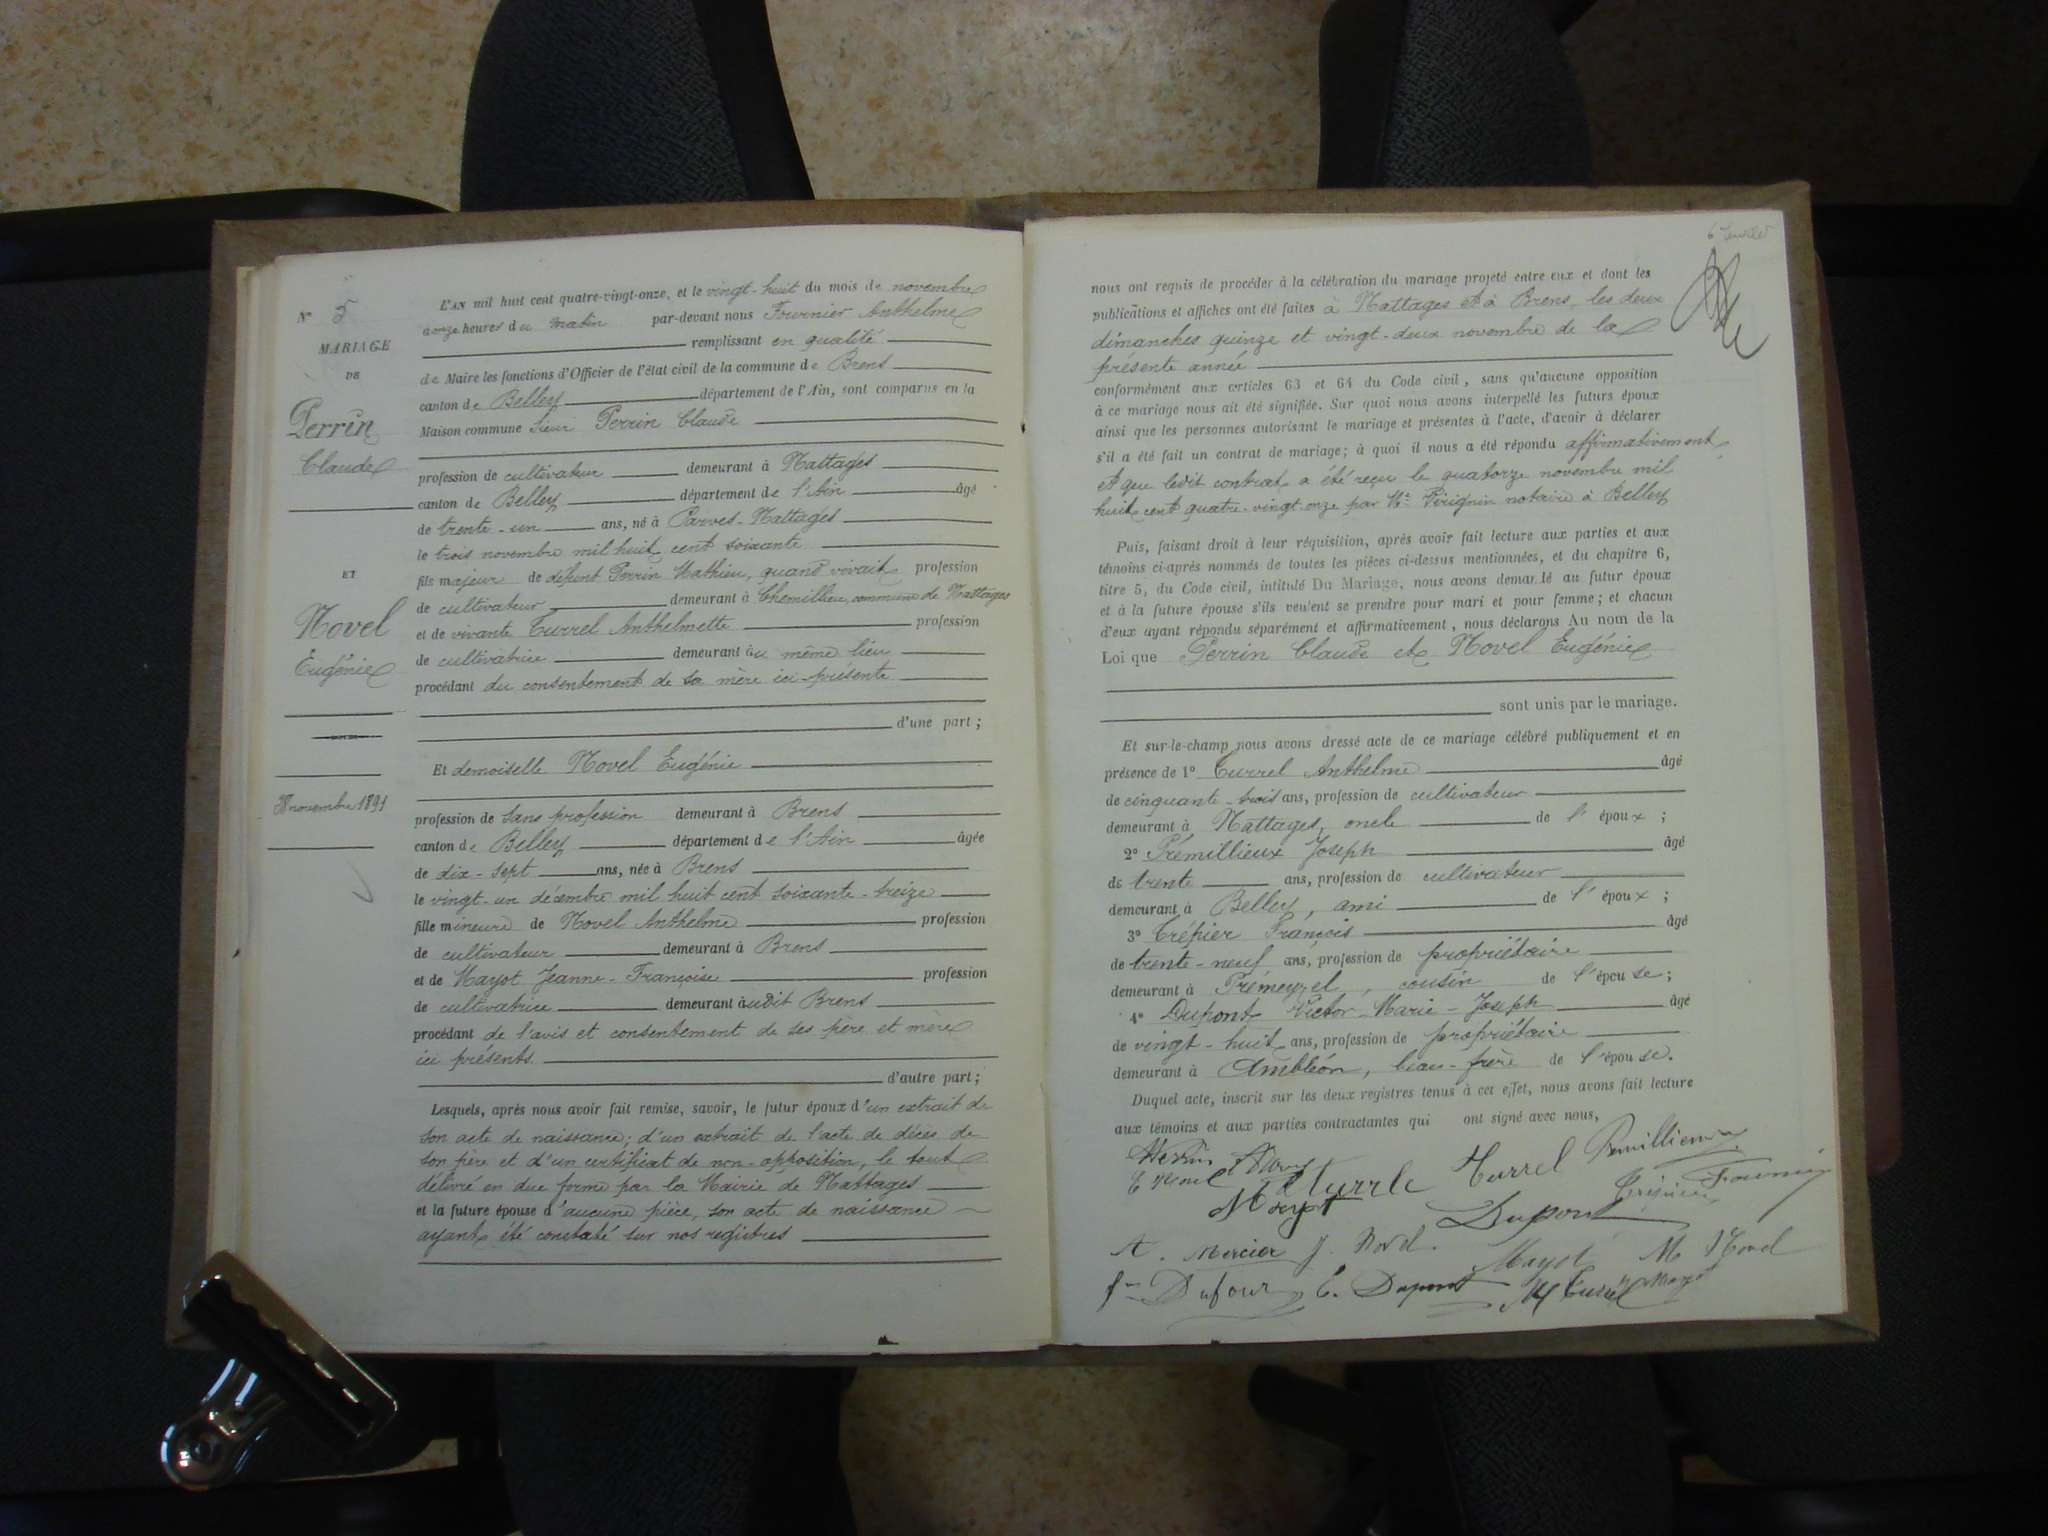 N° 5
MARIAGE
DE
Perrin
Claude
ET
Novel
Eugénie
28 novembre 1891
L'AN mil huit cent quatre-vingt-onze, et le vingt-huit du mois de novembre
à onze heures du matin par-devant nous Fournier Anthelme
remplissant en qualité
de Maire les fonctions d'Officier de l'état civil de la commune de Brens
canton de Belley département de l'Ain, sont comparus en la
Maison commune Sieur Perrin Claude
profession de cultivateur demeurant à Nattages
canton de Belley département de l'Ain âgé
de trente-un ans, né à Parves-Nattages
le trois novembre mil huit cent soixante
fils majeur de défunt Perrin Mathieu, quand vivait profession
de cultivateur demeurant à Chemillieu, commune de Nattages
et de vivante Turrel Anthelmette profession
de cultivatrice demeurant au même lieu
procédant du consentement de sa mère ici-présente
d'une part ;
Et demoiselle Novel Eugénie
profession de sans profession demeurant à Brens
canton de Belley département de l'Ain âgée
de dix-sept ans, née à Brens
le vingt-un décembre mil huit cent soixante-treize
fille mineure de Novel Anthelme profession
de cultivateur demeurant à Brens
et de Mayot Jeanne-Françoise profession
de cultivatrice demeurant audit Brens
procédant de l'avis et consentement de ses père et mère
ici présents
d'autre part ;
Lesquels, après nous avoir fait remise, savoir, le futur époux d'un extrait de
son acte de naissance; d'un extrait de l'acte de décès de
son père et d'un certificat de non-opposition, le tout
délivré en due forme par la Mairie de Nattages
et la future épouse d'aucune pièce, son acte de naissance
ayant été constaté sur nos registres
nous ont requis de procéder à la célébration du mariage projeté entre eux et dont les
publications et affiches ont été faites à Nattages et à Brens les deux
dimanches quinze et vingt-deux novembre de la
présente année
conformément aux articles 63 et 64 du Code civil, sans qu'aucune opposition
à ce mariage nous ait été signifiée. Sur quoi nous avons interpellé les futurs époux
ainsi que les personnes autorisant le mariage et présentes à l'acte, d'avoir à déclarer
s'il a été fait un contrat de mariage; à quoi il nous a été répondu affirmativement
et que ledit contrat a été reçu le quatorze novembre mil
huit cent quatre-vingt-onze par Me Pérignin notaire à Belley
Puis, faisant droit à leur réquisition, après avoir fait lecture aux parties et aux
témoins ci-après nommés de toutes les pièces ci-dessus mentionnées, et du chapitre 6,
titre 5, du Code civil, intitulé Du Mariage, nous avons demandé au futur époux
et à la future épouse s'ils veulent se prendre pour mari et pour femme; et chacun
d'eux ayant répondu séparément et affirmativement, nous déclarons Au nom de la
Loi que Perrin Claude et Novel Eugénie
sont unis par le mariage.
Et sur-le-champ nous avons dressé acte de ce mariage célébré publiquement et en
présence de 1° Turrel Anthelme âgé
de cinquante-trois ans, profession de cultivateur
demeurant à Nattages, oncle de l'époux ;
2° Prémillieux Joseph âgé
de trente ans, profession de cultivateur
demeurant à Belley, ami de l'époux ;
3° Trépier François âgé
de trente-neuf ans, profession de propriétaire
demeurant à Prémeyzel, cousin de l'épouse ;
4° Dupont Victor-Marie-Joseph âgé
de vingt-huit ans, profession de propriétaire
demeurant à Ambléon, beau-frère de l'épouse.
Duquel acte, inscrit sur les deux registres tenus à cet effet, nous avons fait lecture
aux témoins et aux parties contractantes qui ont signé avec nous,
Turrel
Fournier
Mayot Dupont
A. Mercier J. Novel. Mayot M Novel
Dufour E. Dupont